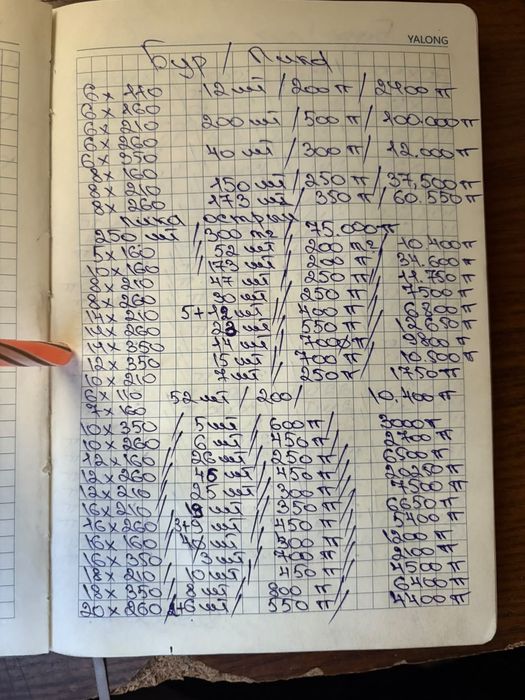 YALONG
Бур / Пика
6 x 110 12 шт / 200 тг / 2400 тг
6 x 260
6 x 210 200 шт / 500 тг / 100.000 тг
6 x 260
6 x 350 40 шт / 300 тг / 12.000 тг
8 x 160
8 x 210 150 шт / 250 тг / 37,500 тг
8 x 260 173 шт / 350 тг / 60.550 тг
пика острая
250 шт / 300 тг / 75.000 тг
5 x 160 / 52 шт / 200 тг / 10.400 тг
10 x 160 / 173 шт / 200 тг / 34.600 тг
8 x 210 / 47 шт / 250 тг / 11.750 тг
x 210 шт / 250 тг / 7500 тг
14 x 210 шт / 400 тг / 6800 тг
14 x 260 / шт / 550 тг / 12.650 тг
14 x 350 / шт / 2800 тг
12 x 350 / 15 шт / 700 тг / 10.500 тг
10 x 210 / 7 шт / 250 тг / 1750 тг
6 x 110 52 шт / 200 / 10.400 тг
x 160
10 x 350 / 5 шт / 600 тг / 3000 тг
10 x 260 / 6 шт / 450 тг / 2700 тг
12 x 160 / 26 шт / 250 тг / 6500 тг
12 x 260 / шт / 450 тг /
12 x 210 / 25 шт / 300 тг / 7500 тг
16 x 210 / шт / 350 тг / 6650 тг
16 x 260 / шт / 450 тг / 5400 тг
16 x 160 / шт / 300 тг / 1200 тг
16 x 350 / 3 шт / 700 тг / 2100 тг
18 x 210 / 10 шт / 450 тг / 4500 тг
18 x 350 / 8 шт / 800 тг / 6400 тг
20 x 260 / шт / 550 тг / 4400 тг